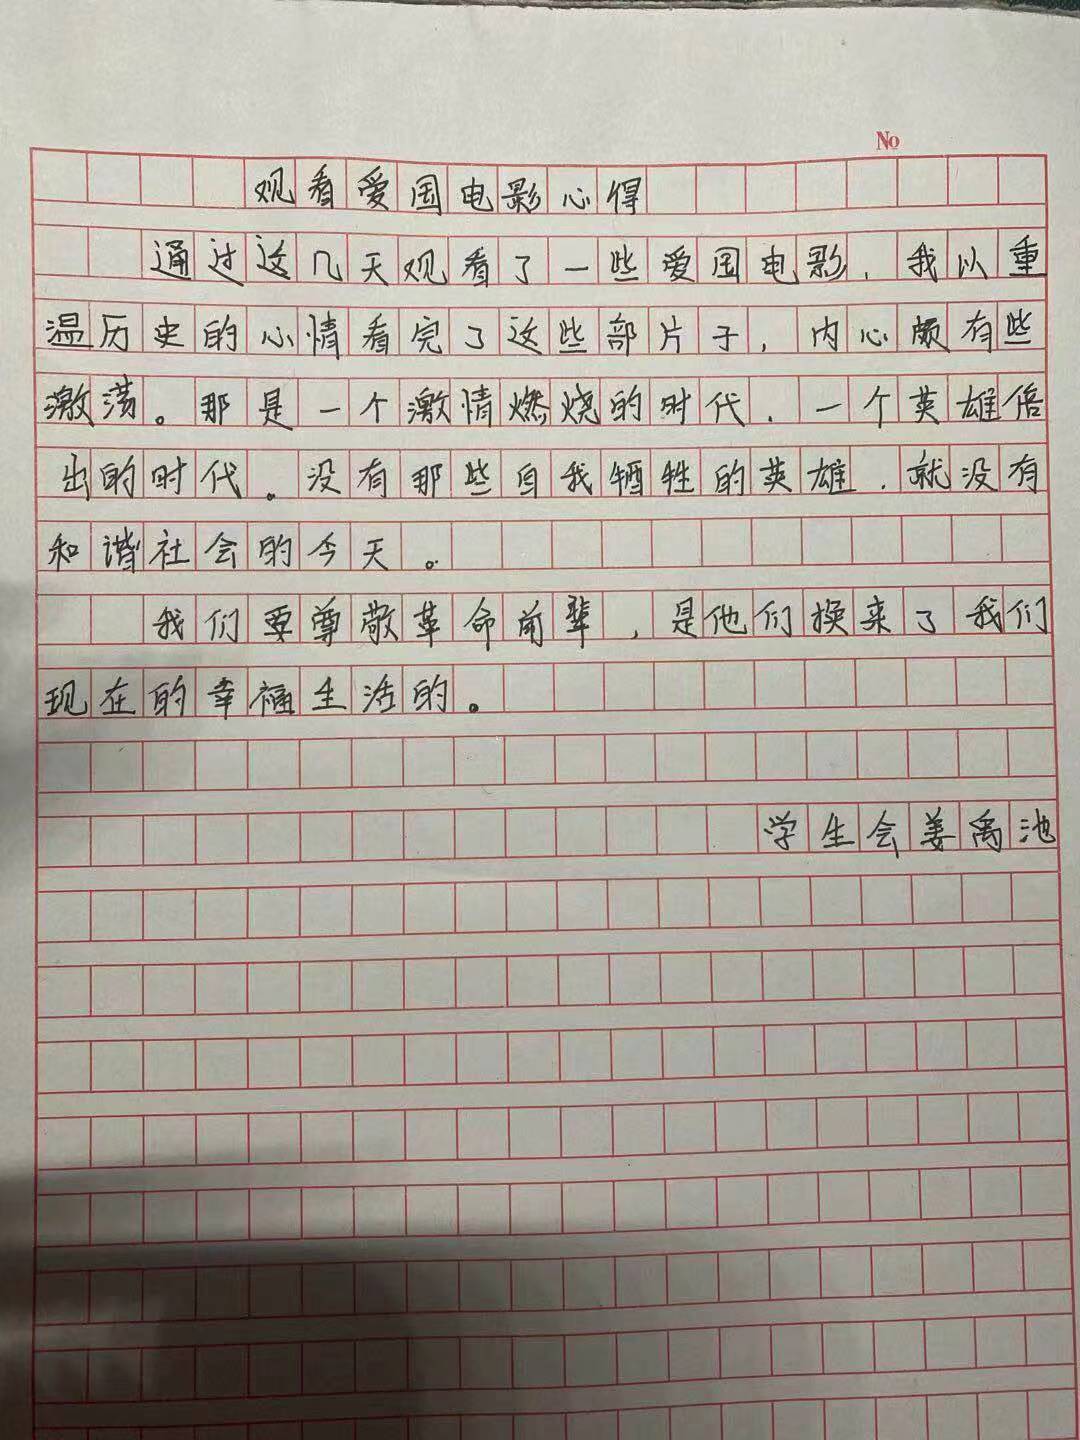 No
观看爱国电影心得
通过这几天观看了一些爱国电影，我以重
温历史的心情看完了这些部片子，内心颇有些
激荡。那是一个激情燃烧的时代，一个英雄倍
出的时代。没有那些自我牺牲的英雄，就没有
和谐社会的今天。
我们要尊敬革命前辈，是他们换来了我们
现在的幸福生活的。
学生会姜禹池